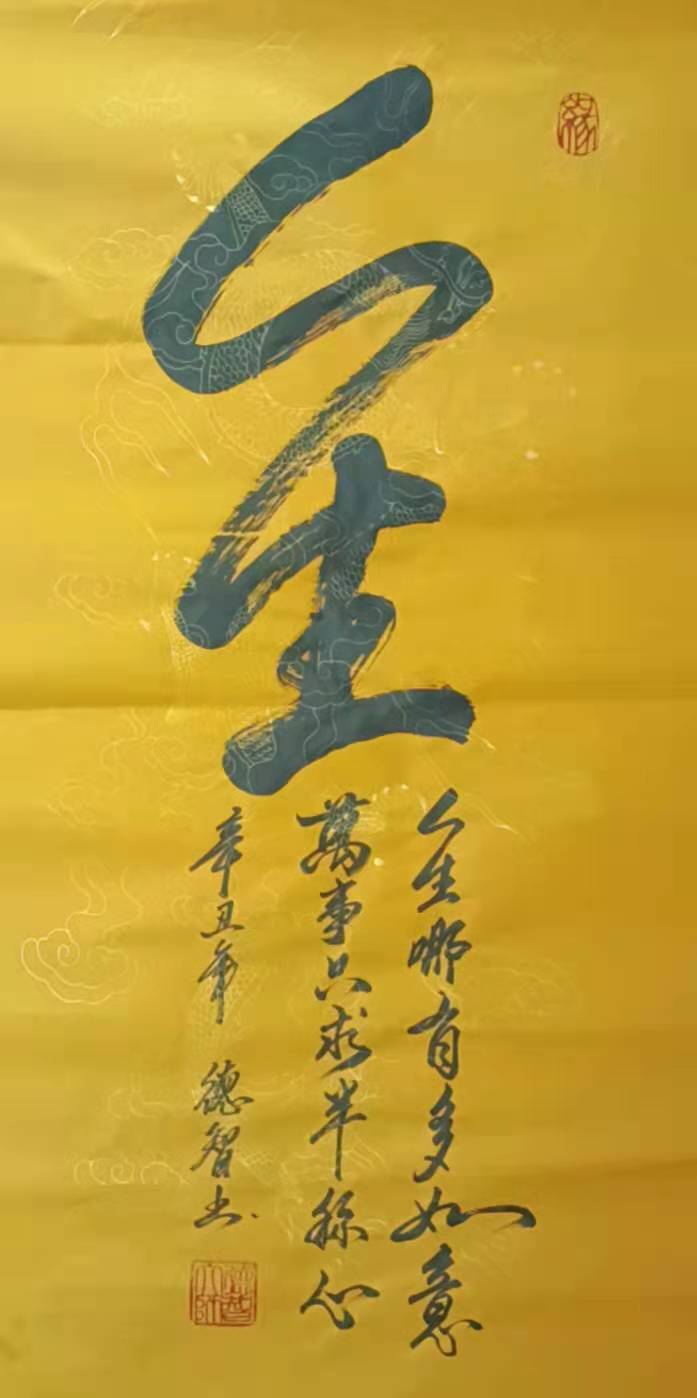 人生
人生哪有多如意
萬事只求半称心
辛丑年 德智书
缘